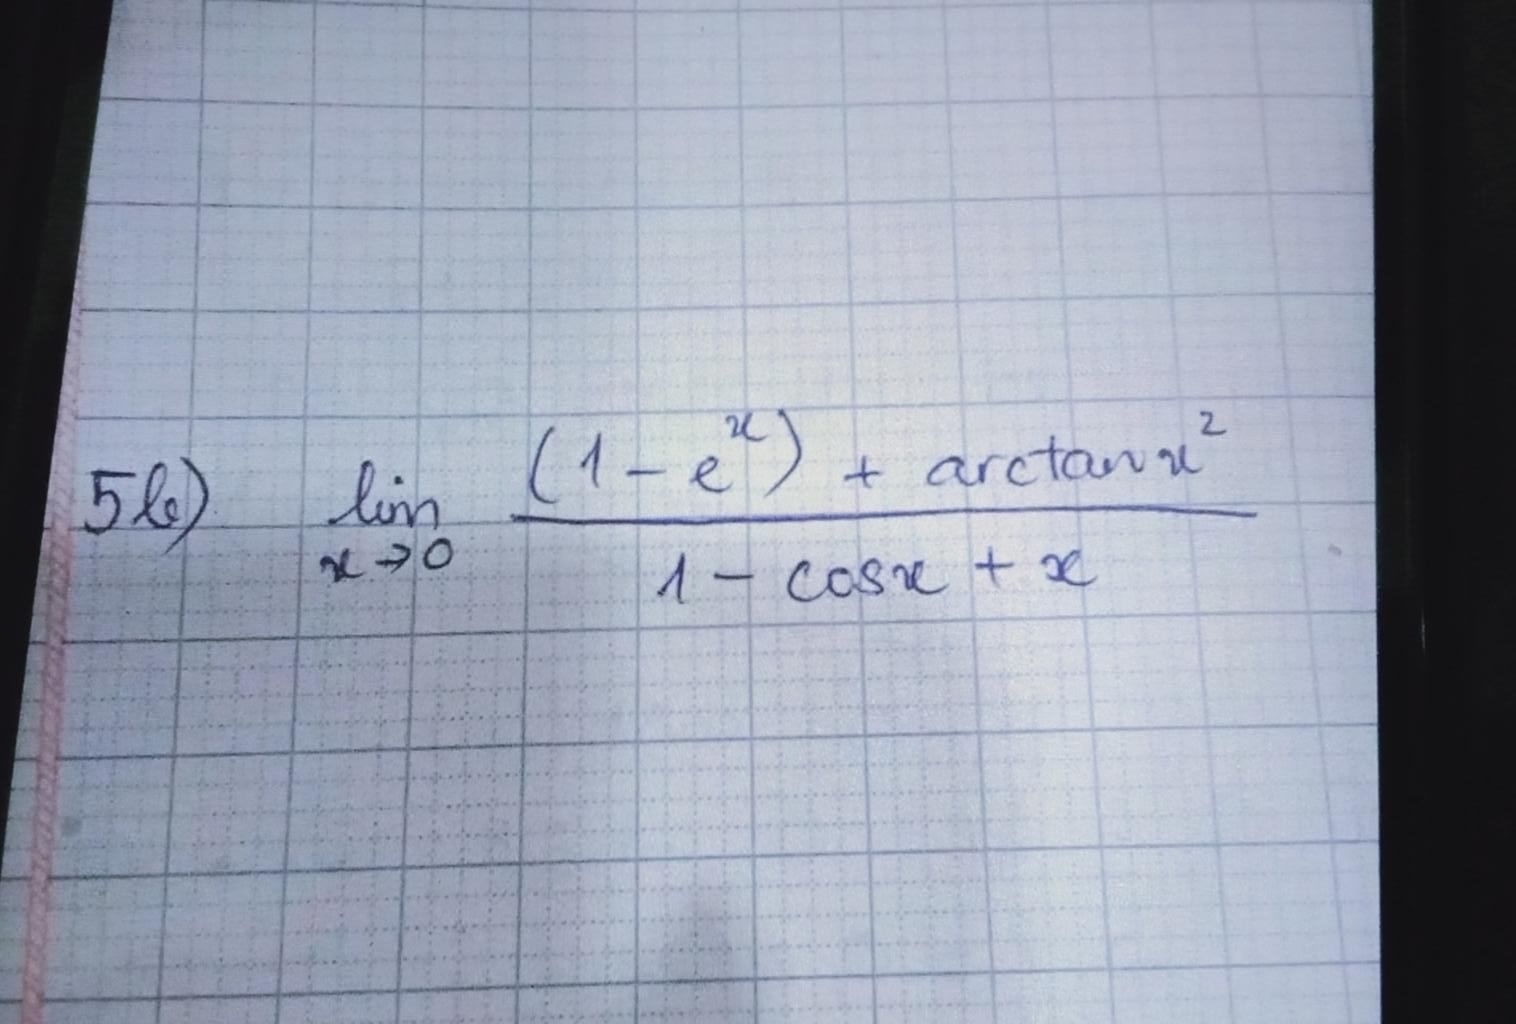 5b) lim x→0 ((1 - e^x) + arctan x^2) / (1 - cosx + x)